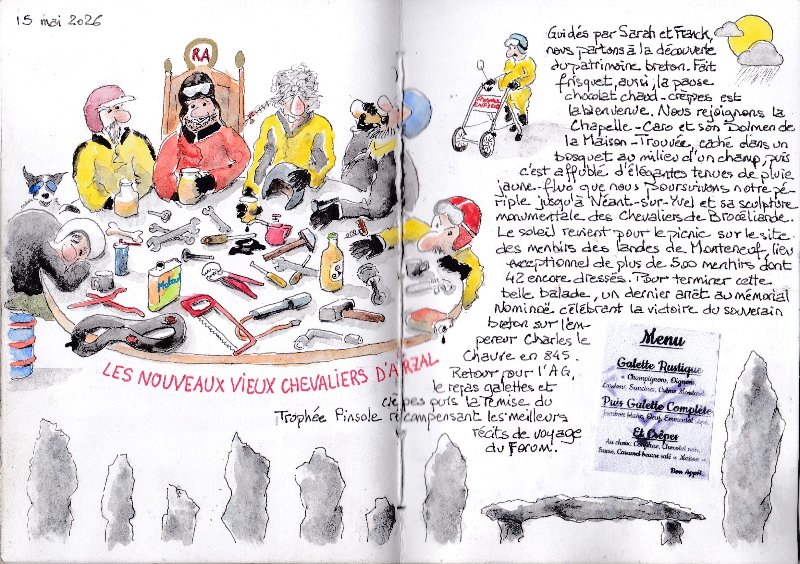 15 mai 2026
RA
Guidés par Sarah et Franck,
nous partons à la découverte
du patrimoine breton. Fait
frisquet, aussi, la pause
chocolat chaud-crêpes est
la bienvenue. Nous rejoignons la
Chapelle-Caro et son Dolmen de
la Maison-Trouvée, caché dans un
bosquet au milieu d'un champ, puis
c'est affublé d'élégantes tenues de pluie
jaune-fluo que nous poursuivons notre pé-
riple jusqu'à Néant-sur-Yvel et sa sculpture
monumentale des Chevaliers de Brocéliande.
Le soleil revient pour le picnic sur le site
des menhirs des landes de Monteneuf, lieu
exceptionnel de plus de 500 menhirs dont
42 encore dressés. Pour terminer cette
belle balade, un dernier arrêt au mémorial
Nominoë célébrant la victoire du souverain
breton sur l'em-
pereur Charles le
Chauve en 845.
Retour pour l'AG,
le repas galettes et
crêpes puis la remise du
Trophée Pinsole récompensant les meilleurs
récits de voyage
du Forum.
LES NOUVEAUX VIEUX CHEVALIERS D'ARZAL
Menu
Galette Rustique
Puis Galette Complète
Et Crêpes
Bon Appétit